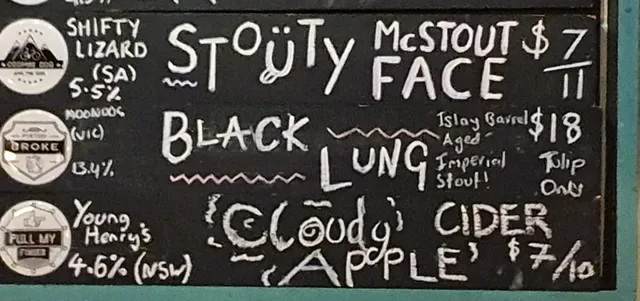 SHIFTY
LIZARD
(SA)
5.5%
STOÜTY
McSTOUT
FACE
$7/11
MOONDOG
(VIC)
13.4%
BROKE
BLACK
LUNG
Islay Barrel
Aged
Imperial
Stout!
$18
Tulip
Only
Young
Henry's
4.6% (NSW)
PULL MY
FINGER
'Cloudy
APPLE'
CIDER
$7/10